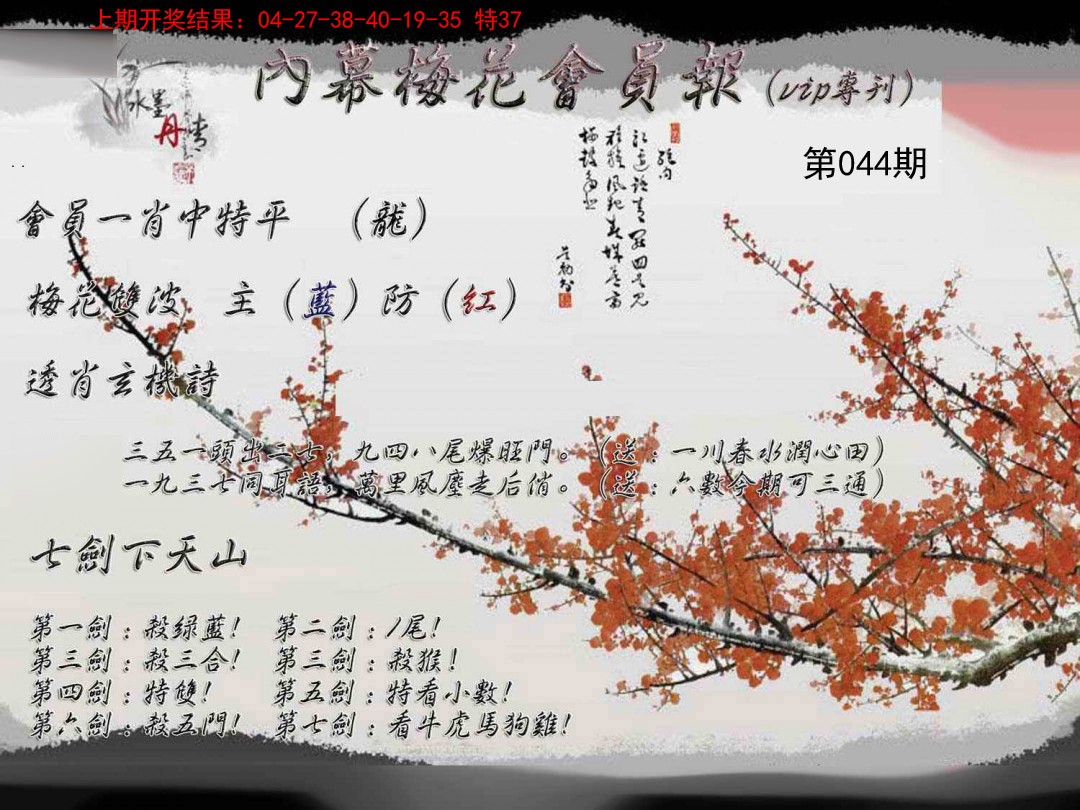 上期开奖结果：04-27-38-40-19-35 特37
內幕梅花會員報（vip專刊）
水墨丹青
第044期
會員一肖中特平 （龍）
梅花雙波 主（藍）防（紅）
透肖玄機詩
三五一頭出二七，九四八尾爆旺門。（送：一川春水潤心田）
一九三七同耳語，萬里風塵走后俏。（送：六數今期可三通）
七劍下天山
第一劍：殺绿藍！ 第二劍：/尾！
第三劍：殺三合！ 第三劍：殺猴！
第四劍：特雙！ 第五劍：特看小數！
第六劍：殺五門！ 第七劍：看牛虎馬狗雞！